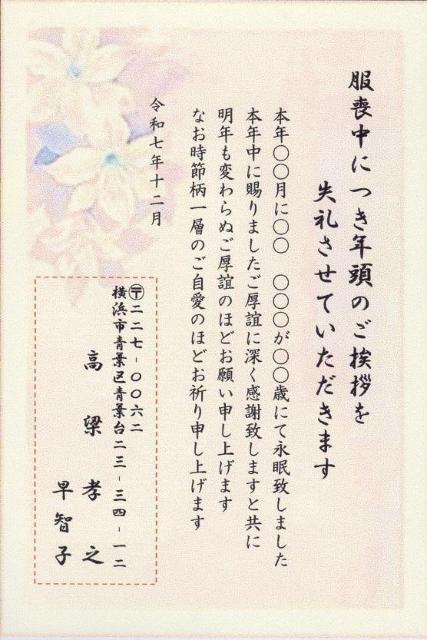 服喪中につき年頭のご挨拶を
失礼させていただきます
本年〇〇月に〇〇　〇〇〇が〇〇歳にて永眠致しました
本年中に賜りましたご厚誼に深く感謝致しますと共に
明年も変わらぬご厚誼のほどお願い申し上げます
なお時節柄一層のご自愛のほどお祈り申し上げます
令和七年十二月
〒二二七-〇〇六二
横浜市青葉区青葉台二三-三四-一二
高梁　孝之
早智子